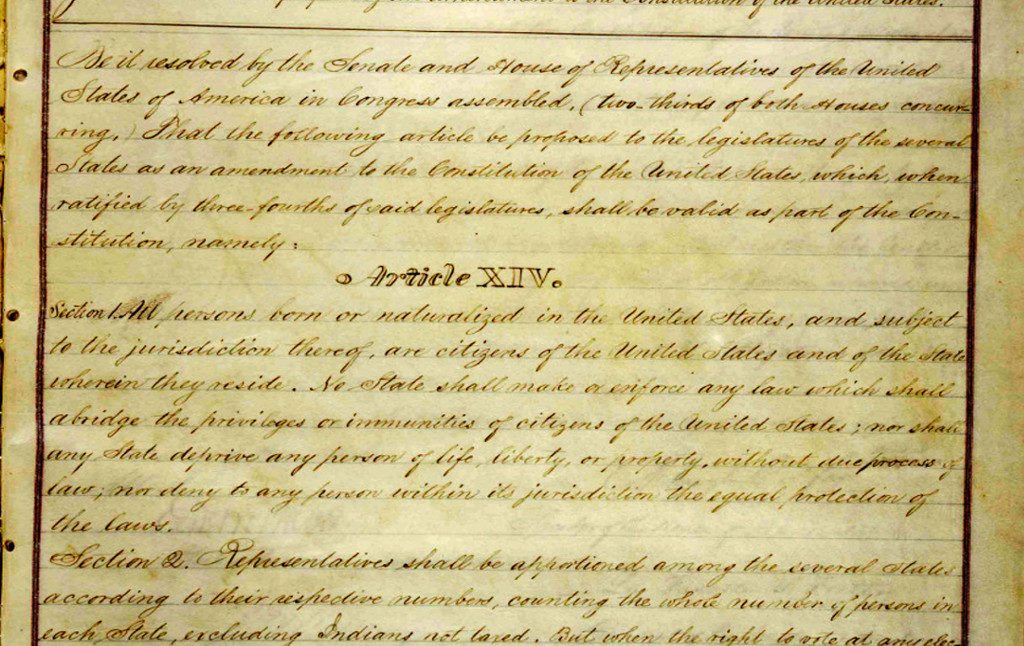 Amendment to the Constitution of the United States.
Be it resolved by the Senate and House of Representatives of the United
States of America in Congress assembled, (two-thirds of both Houses concur-
ring,) That the following article be proposed to the legislatures of the several
States as an amendment to the Constitution of the United States, which, when
ratified by three-fourths of said legislatures, shall be valid as part of the Con-
stitution, namely:
Article XIV.
Section 1. All persons born or naturalized in the United States, and subject
to the jurisdiction thereof, are citizens of the United States and of the State
wherein they reside. No State shall make or enforce any law which shall
abridge the privileges or immunities of citizens of the United States; nor shall
any State deprive any person of life, liberty, or property, without due process of
law; nor deny to any person within its jurisdiction the equal protection of
the laws.
Section 2. Representatives shall be apportioned among the several States
according to their respective numbers, counting the whole number of persons in
each State, excluding Indians not taxed. But when the right to vote at any elec-